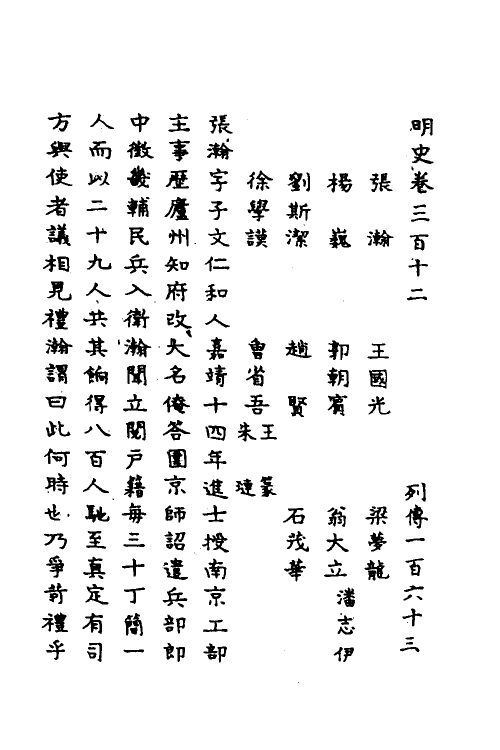 明史卷三百十二　列傳一百六十三
張瀚　王國光　梁夢龍
楊巍　郭朝賓　翁大立　潘志伊
劉斯潔　趙賢　石茂華
徐學謨　曾省吾　王篆　朱璉
張瀚字子文仁和人嘉靖十四年進士授南京工部
主事歷廬州知府改大名俺答圍京師詔遣兵部郎
中徵畿輔民兵入衛瀚聞立閱戶籍每三十丁簡一
人而以二十九人共其餉得八百人馳至真定有司
方與使者議相見禮瀚謂曰此何時也乃爭苛禮乎